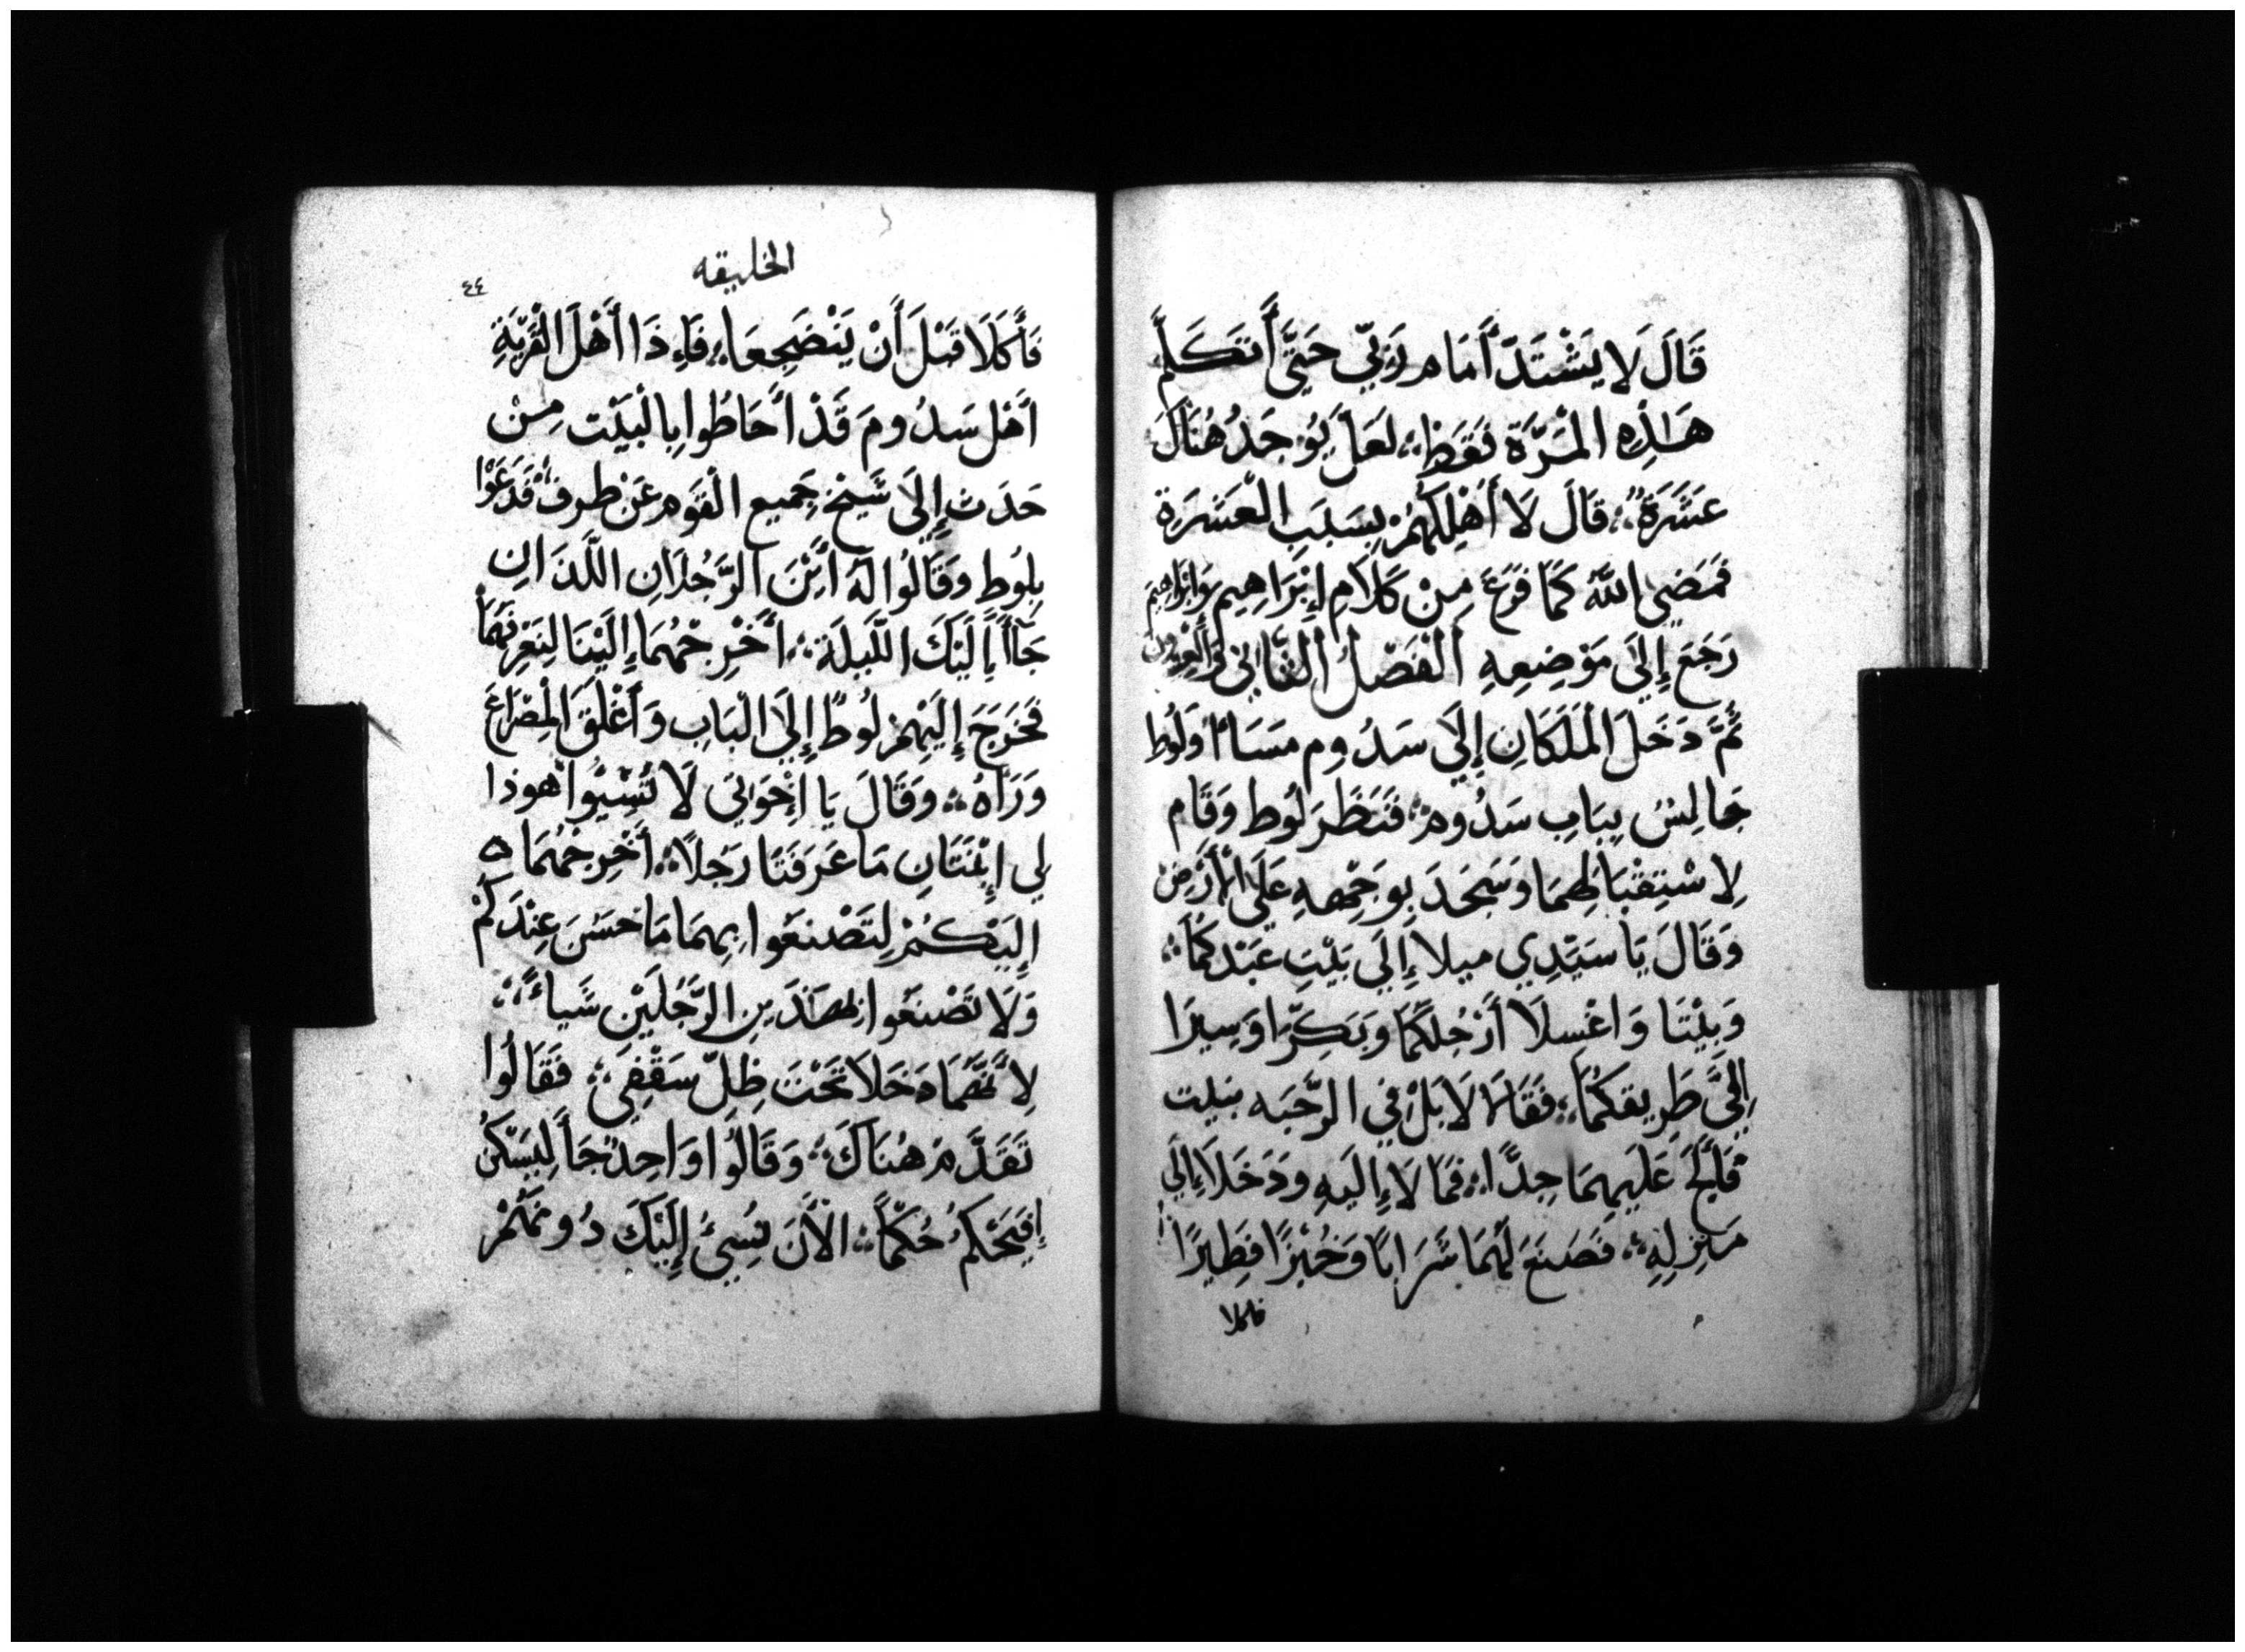 قَالَ لَا يَشْتَدّ أَمَام رَبِّي حَتَّى أَتَكَلَّم
هَـٰذِهِ الْمَرَّة فَقَط لَعَل يُوجَدُ هُنَاكَ
عَشَرَة قَالَ لَا أُهْلِكُهُمْ بِسَبَبِ الْعَشَرَة
فَمَضَى اللهُ كَمَا فَرَغَ مِنْ كَلَامِ إِبْرَاهِيم وَإِبْرَاهِيم
رَجَعَ إِلَى مَوْضِعِهِ الْفَصْلُ الثَّانِي
ثُمَّ دَخَلَ الْمَلَكَانِ إِلَى سَدُوم مَسَاءً وَلُوط
جَالِسُ بِبَابِ سَدُوم فَنَظَرَ لُوط وَقَام
لِاسْتِقْبَالِهِمَا وَسَجَدَ بِوَجْهِهِ عَلَى الْأَرْضِ
وَقَالَ يَا سَيِّدِي مِيلَا إِلَى بَيْتِ عَبْدِكُمَا
وَبِيْتَا وَاغْسِلَا أَرْجُلَكُمَا وَبَكِّرَا وَسِيرَا
إِلَى طَرِيقِكُمَا فَقَالَا لَا بَلْ فِي الرَّحْبَه نبيت
فَأَلَحَّ عَلَيهِمَا جِدًّا فَمَالَا إِلَيهِ وَدَخَلَا إِلَى
مَنْزِلِهِ فَصَنَعَ لَهُمَا شَرَابًا وَخُبْزًا فَطِيرًا
فاكلا
الخليقه
٤٤
فَأَكَلَا قَبْلَ أَنْ يَنْضَجِعَا فَإِذَا أَهْلَ الْقَرْيَةِ
أَهْل سَدُومَ قَدْ أَحَاطُوا بِالْبَيْت مِنْ
حَدَث إِلَى شَيخ جَمِيع الْقَوم عَنْ طرف فَدَعَوْا
بِلُوط وَقَالُوا لَهُ أَيْنَ الرَّجُلَانِ اللَّذَانِ
جَاأَا إِلَيْكَ اللَّيلَة أَخْرِجْهُمَا إِلَيْنَا لِنَعْرِفَهُمَا
فَخَرَجَ إِلَيْهِمْ لُوطًا إِلَى الْبَابِ وَأَغْلَقَ الْمِصْرَاعَ
وَرَآهُ وَقَالَ يَا إِخْوَانِي لَا تُسِيْوُا هوذا
لِي ابْنَتَانِ مَا عَرَفَتَا رَجُلًا أَخْرِجْهُمَا
إِلَيْكُمْ لِتَصْنَعُوا بِهِمَا مَا حَسُنَ عِنْدَكُمْ
وَلَا تَصْنَعُوا بِهَاذَينِ الرَّجُلَيْنِ شَيأً
لِأَنَّهُمَا دَخَلَا تَحْتَ ظِلّ سَقْفِي فَقَالُوا
تَقَدَّم هُنَاكَ وَقَالُوا وَاحِدٌ جَأ لِيَسْكُنْ
أَفَيَحْكُمُ حُكْمًا الْأَنَ نُسِيُ إِلَيْكَ دُونَهُمْ